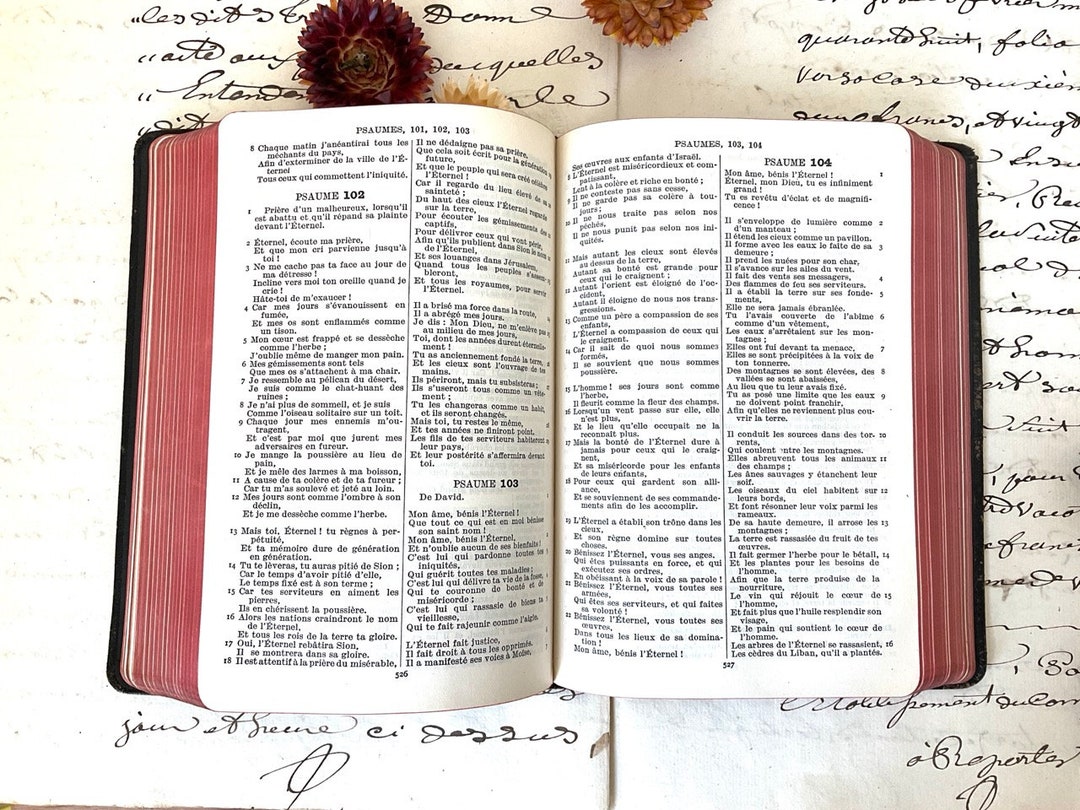 «les dits
Donne
«acte aux
desquelles
« Entendan
quarante huit, folio
verso case deuxième
francs, et vingt
PSAUMES, 101, 102, 103
8 Chaque matin j'anéantirai tous les
méchants du pays,
Afin d'exterminer de la ville de l'É-
ternel
Tous ceux qui commettent l'iniquité.
PSAUME 102
1 Prière d'un malheureux, lorsqu'il
est abattu et qu'il répand sa plainte
devant l'Éternel.
2 Éternel, écoute ma prière,
Et que mon cri parvienne jusqu'à
toi !
3 Ne me cache pas ta face au jour de
ma détresse !
Incline vers moi ton oreille quand je
crie !
Hâte-toi de m'exaucer !
4 Car mes jours s'évanouissent en
fumée,
Et mes os sont enflammés comme
un tison.
5 Mon cœur est frappé et se dessèche
comme l'herbe ;
J'oublie même de manger mon pain.
6 Mes gémissements sont tels
Que mes os s'attachent à ma chair.
7 Je ressemble au pélican du désert,
Je suis comme le chat-huant des
ruines ;
8 Je n'ai plus de sommeil, et je suis
Comme l'oiseau solitaire sur un toit.
9 Chaque jour mes ennemis m'ou-
tragent,
Et c'est par moi que jurent mes
adversaires en fureur.
10 Je mange la poussière au lieu de
pain,
Et je mêle des larmes à ma boisson,
11 A cause de ta colère et de ta fureur ;
Car tu m'as soulevé et jeté au loin.
12 Mes jours sont comme l'ombre à son
déclin,
Et je me dessèche comme l'herbe.
13 Mais toi, Éternel ! tu règnes à per-
pétuité,
Et ta mémoire dure de génération
en génération.
14 Tu te lèveras, tu auras pitié de Sion ;
Car le temps d'avoir pitié d'elle,
Le temps fixé est à son terme ;
15 Car tes serviteurs en aiment les
pierres,
Ils en chérissent la poussière.
16 Alors les nations craindront le nom
de l'Éternel,
Et tous les rois de la terre ta gloire.
17 Oui, l'Éternel rebâtira Sion,
Il se montrera dans sa gloire.
18 Il est attentif à la prière du misérable,
Il ne dédaigne pas sa prière.
Que cela soit écrit pour la génération
future,
Et que le peuple qui sera créé célèbre
l'Éternel !
Car il regarde du lieu élevé de sa
sainteté ;
Du haut des cieux l'Éternel regarde
sur la terre,
Pour écouter les gémissements des
captifs,
Pour délivrer ceux qui vont périr,
Afin qu'ils publient dans Sion le nom
de l'Éternel,
Et ses louanges dans Jérusalem,
Quand tous les peuples s'assem-
bleront,
Et tous les royaumes, pour servir
l'Éternel.
Il a brisé ma force dans la route,
Il a abrégé mes jours.
Je dis : Mon Dieu, ne m'enlève pas
au milieu de mes jours,
Toi, dont les années durent éternelle-
ment !
Tu as anciennement fondé la terre,
Et les cieux sont l'ouvrage de tes
mains.
Ils périront, mais tu subsisteras ;
Ils s'useront tous comme un vête-
ment ;
Tu les changeras comme un habit,
et ils seront changés.
Mais toi, tu restes le même,
Et tes années ne finiront point.
Les fils de tes serviteurs habiteront
leur pays,
Et leur postérité s'affermira devant
toi.
PSAUME 103
De David.
Mon âme, bénis l'Éternel !
Que tout ce qui est en moi bénisse
son saint nom !
Mon âme, bénis l'Éternel,
Et n'oublie aucun de ses bienfaits !
C'est lui qui pardonne toutes tes
iniquités,
Qui guérit toutes tes maladies ;
C'est lui qui délivre ta vie de la fosse,
Qui te couronne de bonté et de
miséricorde ;
C'est lui qui rassasie de biens ta
vieillesse,
Qui te fait rajeunir comme l'aigle.
L'Éternel fait justice,
Il fait droit à tous les opprimés.
Il a manifesté ses voies à Moïse,
526
PSAUMES, 103, 104
Ses œuvres aux enfants d'Israël.
8 L'Éternel est miséricordieux et com-
patissant,
Lent à la colère et riche en bonté ;
9 Il ne conteste pas sans cesse,
Il ne garde pas sa colère à tou-
jours ;
10 Il ne nous traite pas selon nos
péchés,
Il ne nous punit pas selon nos ini-
quités.
11 Mais autant les cieux sont élevés
au dessus de la terre,
Autant sa bonté est grande pour
ceux qui le craignent ;
12 Autant l'orient est éloigné de l'oc-
cident,
Autant il éloigne de nous nos trans-
gressions.
13 Comme un père a compassion de ses
enfants,
L'Éternel a compassion de ceux qui
le craignent.
14 Car il sait de quoi nous sommes
formés,
Il se souvient que nous sommes
poussière.
15 L'homme ! ses jours sont comme
l'herbe,
Il fleurit comme la fleur des champs.
16 Lorsqu'un vent passe sur elle, elle
n'est plus,
Et le lieu qu'elle occupait ne la
reconnaît plus.
17 Mais la bonté de l'Éternel dure à
jamais pour ceux qui le craig-
nent,
Et sa miséricorde pour les enfants
de leurs enfants,
18 Pour ceux qui gardent son alli-
ance,
Et se souviennent de ses commande-
ments afin de les accomplir.
19 L'Éternel a établi son trône dans les
cieux,
Et son règne domine sur toutes
choses.
20 Bénissez l'Éternel, vous ses anges.
Qui êtes puissants en force, et qui
exécutez ses ordres,
En obéissant à la voix de sa parole !
21 Bénissez l'Éternel, vous toutes ses
armées,
Qui êtes ses serviteurs, et qui faites
sa volonté !
22 Bénissez l'Éternel, vous toutes ses
œuvres,
Dans tous les lieux de sa domina-
tion !
Mon âme, bénis l'Éternel !
PSAUME 104
Mon âme, bénis l'Éternel ! 1
Éternel, mon Dieu, tu es infiniment
grand !
Tu es revêtu d'éclat et de magnifi-
cence !
Il s'enveloppe de lumière comme 2
d'un manteau ;
Il étend les cieux comme un pavillon.
Il forme avec les eaux le faîte de sa 3
demeure ;
Il prend les nuées pour son char,
Il s'avance sur les ailes du vent.
Il fait des vents ses messagers, 4
Des flammes de feu ses serviteurs.
Il a établi la terre sur ses fonde- 5
ments,
Elle ne sera jamais ébranlée.
Tu l'avais couverte de l'abîme 6
comme d'un vêtement,
Les eaux s'arrêtaient sur les mon-
tagnes ;
Elles ont fui devant ta menace, 7
Elles se sont précipitées à la voix de
ton tonnerre.
Des montagnes se sont élevées, des 8
vallées se sont abaissées,
Au lieu que tu leur avais fixé.
Tu as posé une limite que les eaux 9
ne doivent point franchir,
Afin qu'elles ne reviennent plus cou-
vrir la terre.
Il conduit les sources dans des tor- 10
rents,
Qui coulent entre les montagnes.
Elles abreuvent tous les animaux 11
des champs ;
Les ânes sauvages y étanchent leur
soif.
Les oiseaux du ciel habitent sur 12
leurs bords,
Et font résonner leur voix parmi les
rameaux.
De sa haute demeure, il arrose les 13
montagnes ;
La terre est rassasiée du fruit de tes
œuvres.
Il fait germer l'herbe pour le bétail, 14
Et les plantes pour les besoins de
l'homme,
Afin que la terre produise de la
nourriture,
Le vin qui réjouit le cœur de 15
l'homme,
Et fait plus que l'huile resplendir son
visage,
Et le pain qui soutient le cœur de
l'homme.
Les arbres de l'Éternel se rassasient, 16
Les cèdres du Liban, qu'il a plantés.
527
jour et heure ci dessus
à Reporter